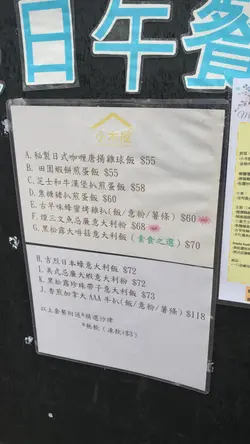 日午餐
小木屋
A. 秘製日式咖喱唐揚雞球飯 $55
B. 田園蝦餅煎蛋飯 $55
C. 芝士和牛漢堡扒煎蛋飯 $58
D. 焦糖豬扒煎蛋飯 $60
E. 古早味蜂蜜烤雞扒(飯/意粉/薯條) $60
F. 煙三文魚忌廉意大利粉 $68
G. 黑松露大啡菇意大利飯 (素食之選) $70
H. 吉烈日本蠔意大利飯 $72
I. 美式忌廉大蝦意大利粉 $72
K. 黑松露珍珠帶子意大利飯 $73
J. 香煎加拿大AAA牛扒(飯/意粉/薯條) $118
以上套餐附送*精選沙律
*熱飲 (凍飲+$3)